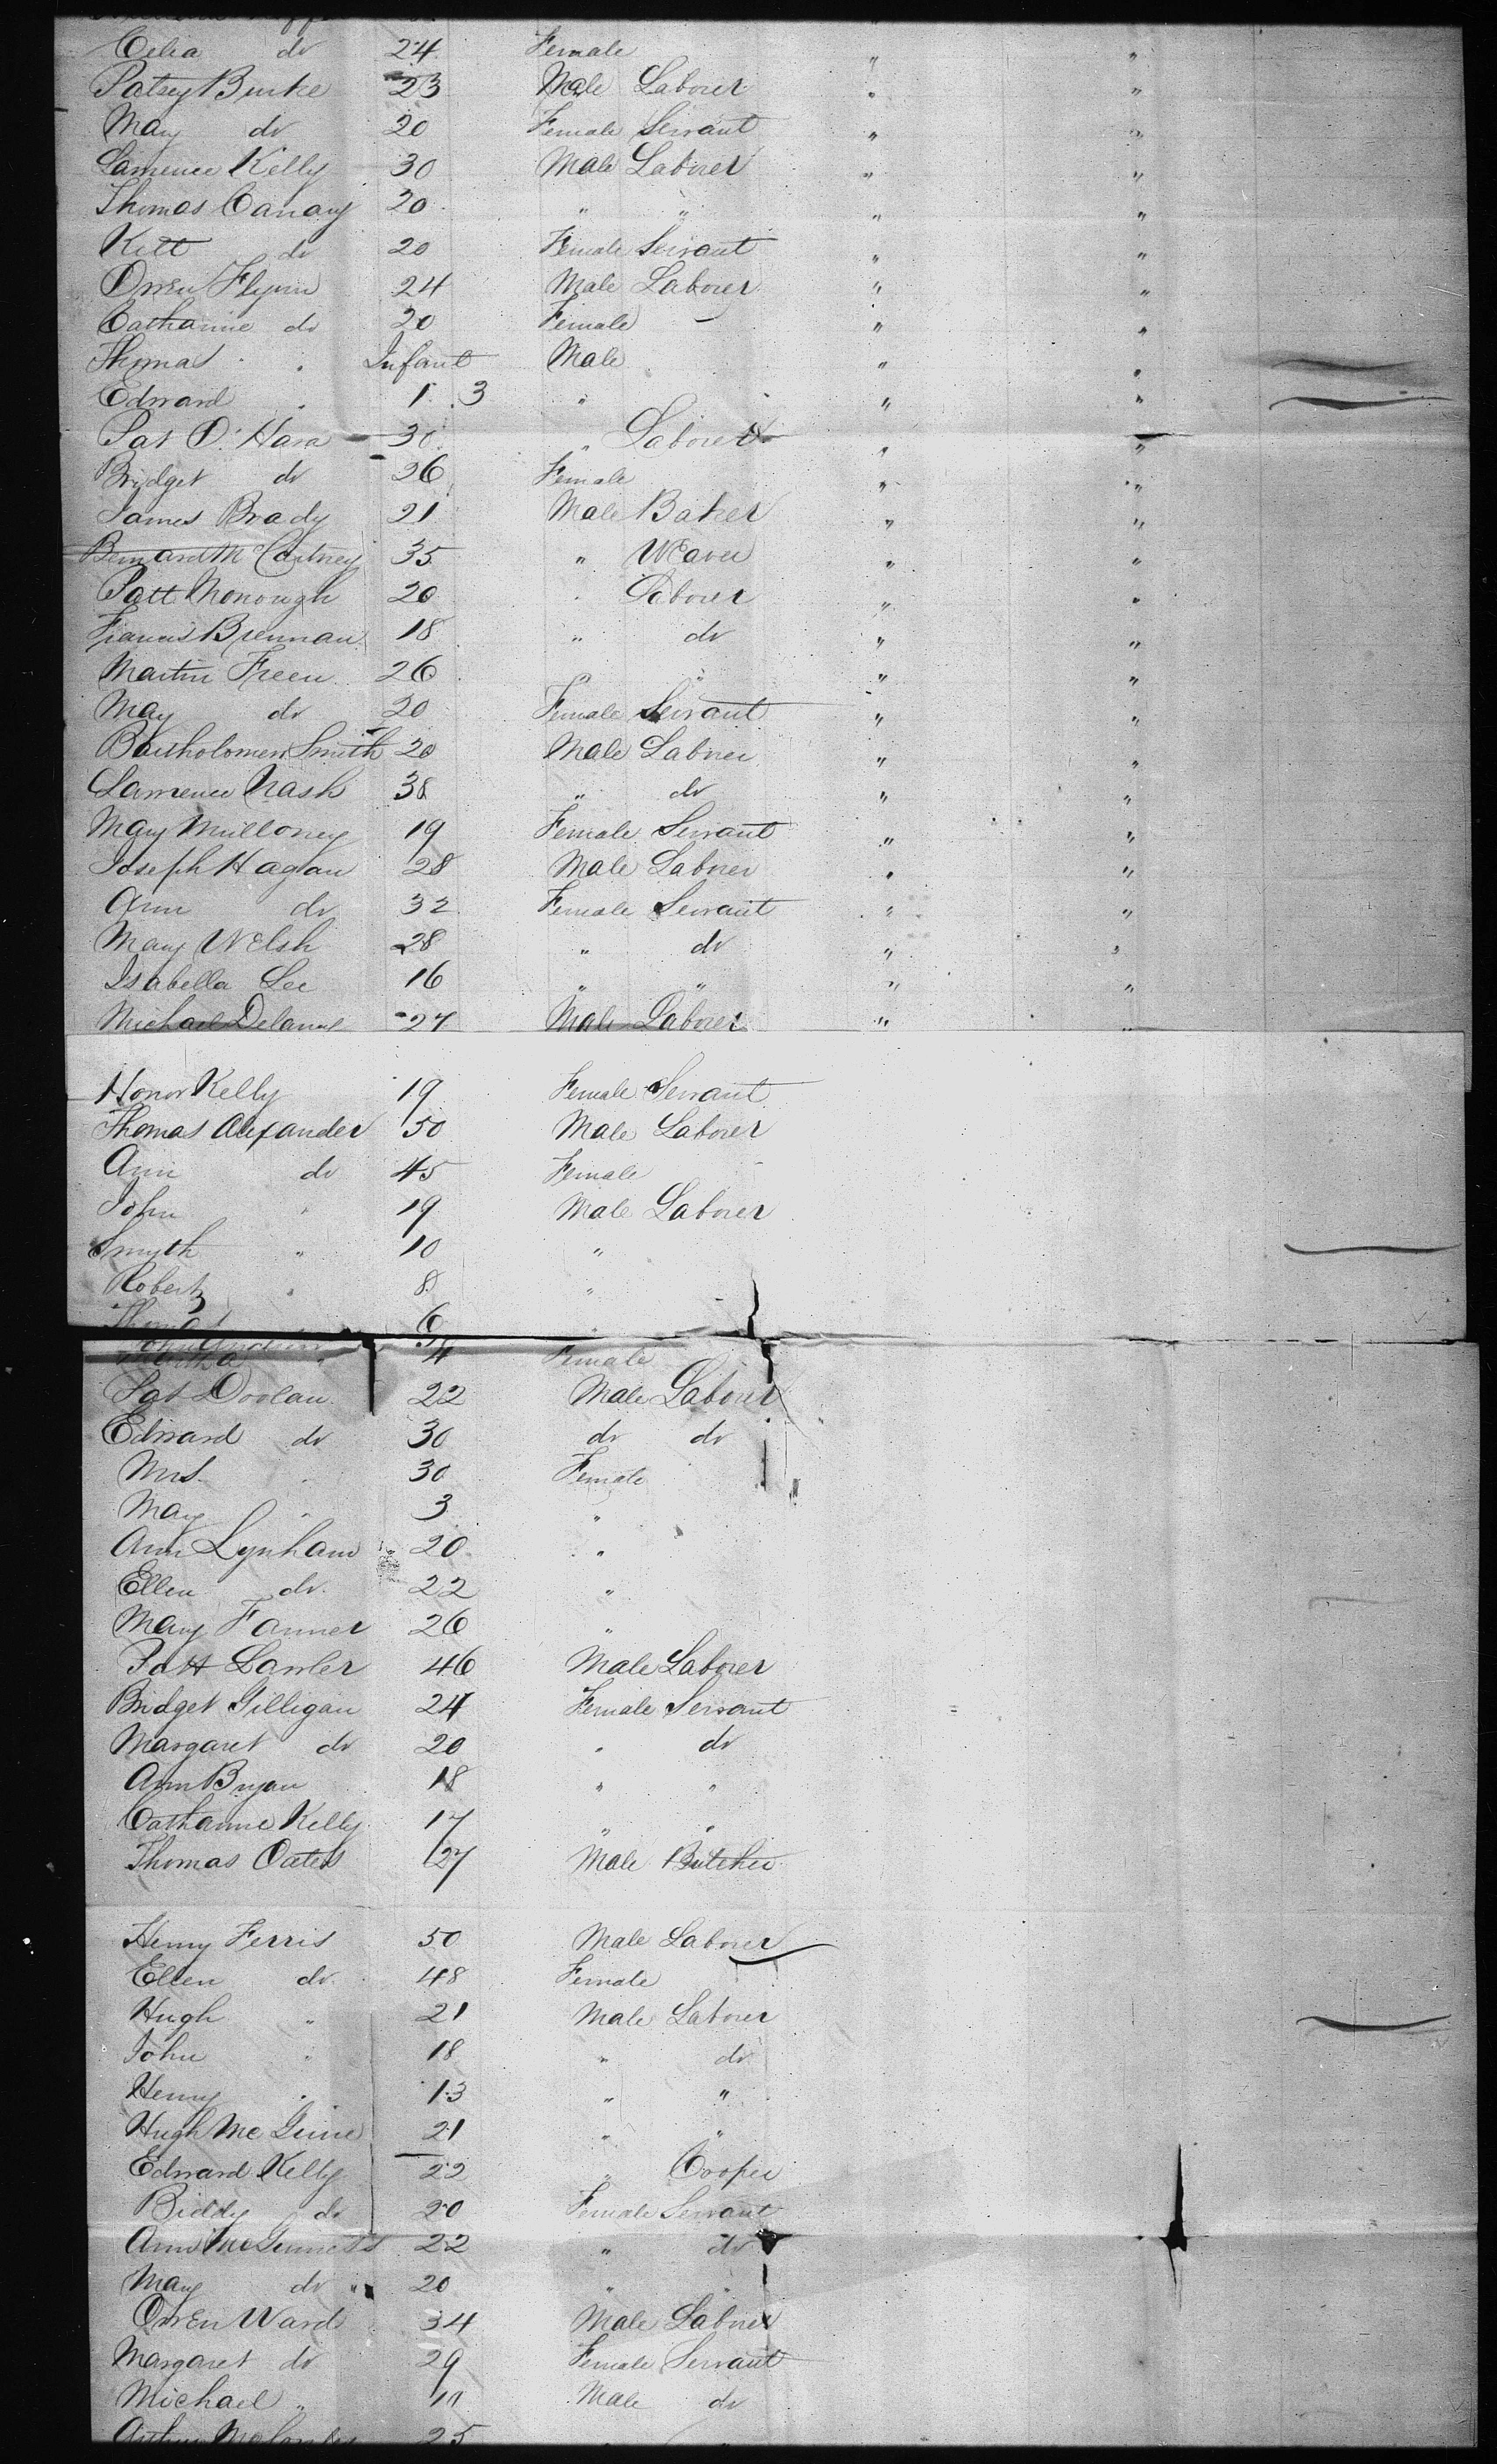 Celia do 24 Female " "
Patsey Burke 23 Male Laborer " "
Mary do 20 Female Servant " "
Lawrence Kelly 30 Male Laborer " "
Thomas Canary 20 " " " "
Kitt do 20 Female Servant " "
Owen Flynn 24 Male Laborer " "
Catharine do 20 Female - " "
Thomas " Infant Male " "
Edward " 1 3 " " "
Pat O'Hara 30 " Laborer " "
Bridget do 26 Female " "
James Brady 21 Male Baker " "
Bernard McCartney 35 " Weaver " "
Patt Monough 20 " Laborer " "
Francis Brennan 18 " do " "
Martin Freen 26 " " " "
Mary do 20 Female Servant " "
Bartholomew Smith 20 Male Laborer " "
Lawrence Nash 38 " do " "
Mary Mulloney 19 Female Servant " "
Joseph Hagan 28 Male Laborer " "
Ann do 32 Female Servant " "
Mary Welsh 28 " do " "
Isabella Lee 16 " " " "
Michael Delany 27 Male Laborer " "
Honor Kelly 19 Female Servant
Thomas Alexander 50 Male Laborer
Ann do 45 Female
John " 19 Male Laborer
Smyth " 10 "
Robert " 8 "
Thomas 6
4 Female
Pat Doolan 22 Male Laborer
Edward do 30 do do
Mrs " 30 Female
Mary " 3 "
Ann Lynham 20 "
Ellen do 22 "
Mary Farmer 26 "
Patt Lawler 46 Male Laborer
Bridget Gilligan 24 Female Servant
Margaret do 20 " do
Ann Bryan 18 " "
Catharine Kelly 17 " "
Thomas Oates 27 Male Butcher
Henry Ferris 50 Male Laborer
Ellen do 48 Female
Hugh " 21 Male Laborer
John " 18 " do
Henry " 13 " "
Hugh McGuire 21 " "
Edward Kelly 22 " Cooper
Biddy do 20 Female Servant
Ann 22 " do
Mary do 20 " "
Owen Ward 34 Male Laborer
Margaret do 29 Female Servant
Michael " 11 Male do
Arthur 25